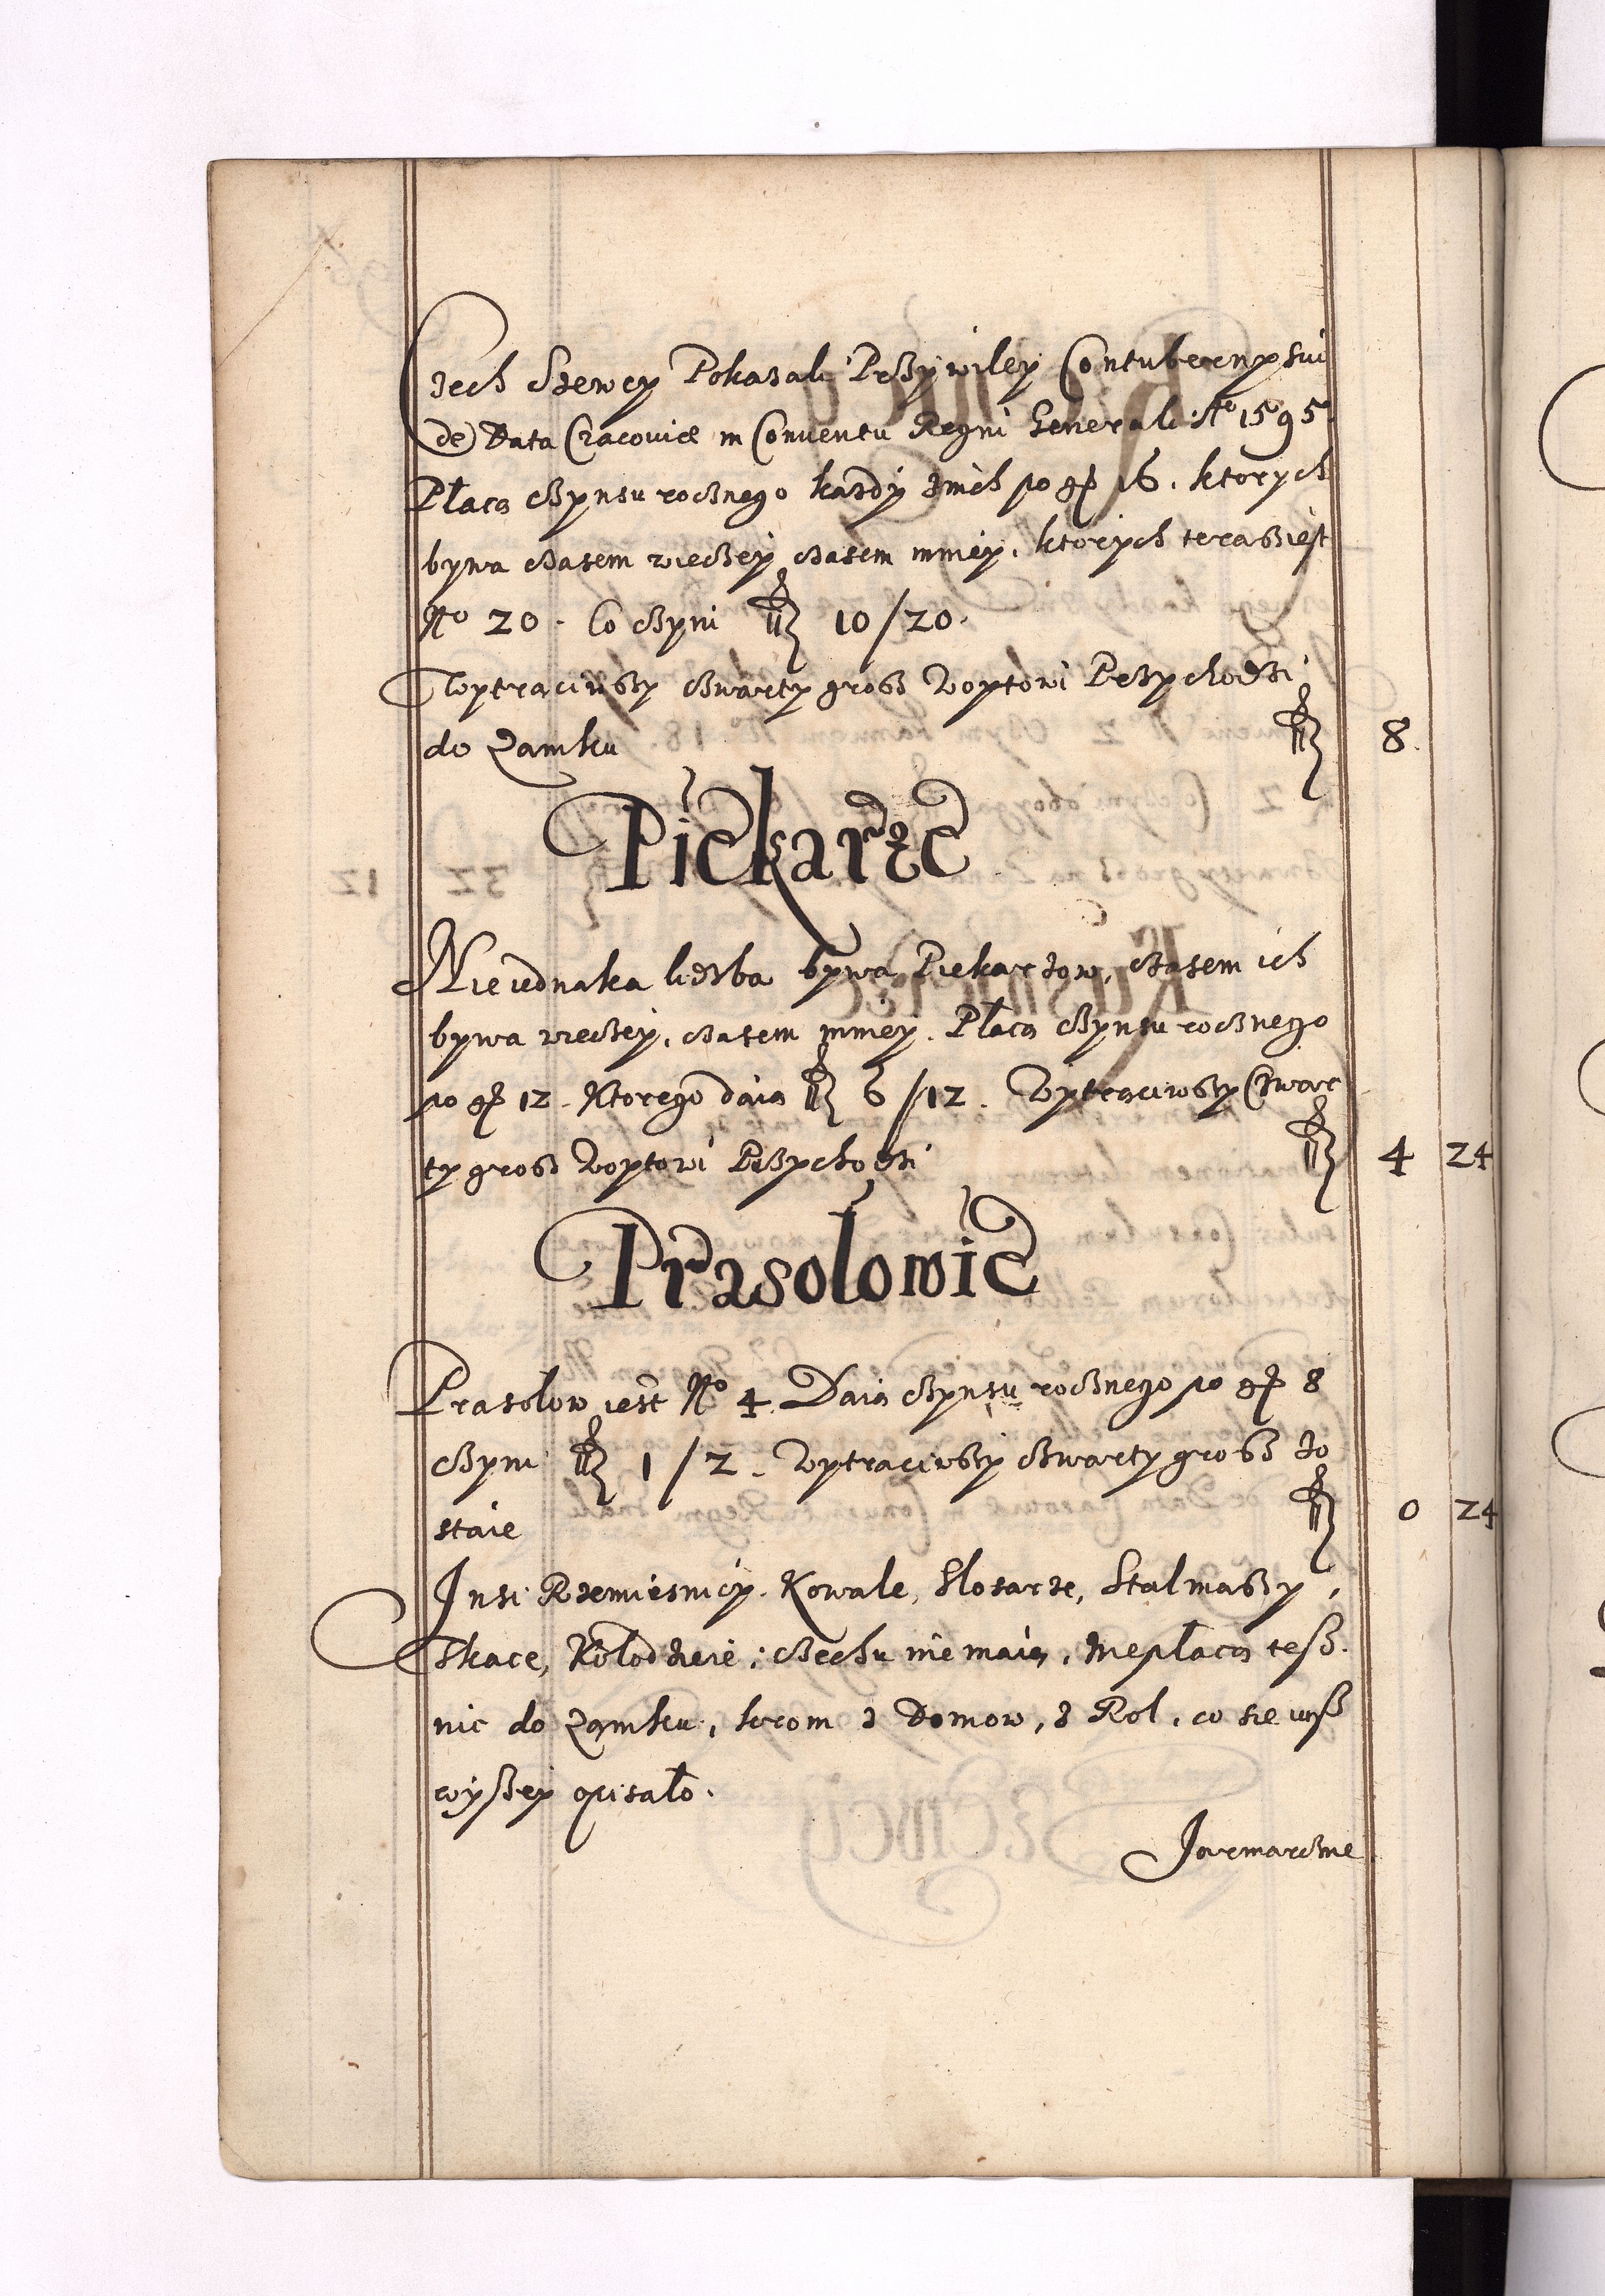 Czech Szewcy Pokazali Przywiley Contubernÿ sui
de Data Cracoviæ in Conventu Regni Generali A° 1595.
Płacą czynsu rocznego kazdÿ znich po gr 16. ktorych
bywa czasem wiecey czasem mniey, ktorych teraz iest
N° 20. Co czyni fl 10/20.
Wytraciwszy czwarty grosz Woytowi Przychodzi
do Zamku fl 8.
Piekarze
Nieiednaka liczba bywa Piekarzow, czasem ich
bywa wiecey, czasem mniey. Płacą czynsu rocznego
po gr 12. Ktorego daią fl 6/12. Wytraciwszy Czwar
ty grosz Woytowi Przychodzi fl 4 24
Prasołowie
Prasolow iest N° 4. Daią czynsu rocznego po gr 8
czyni fl 1/2. Wytraciwszy czwarty grosz zo
staie fl 0 24
Insi Rzemiesnicy. Kowale, Slosarze, Stalmaszy,
Tkace, Kolodzieie, czechu nie maią, nie płacą tesz.
nic do Zamku, krom z Domow, z Rol, co sie iusz
wyszey opisało.
Jarmarczne